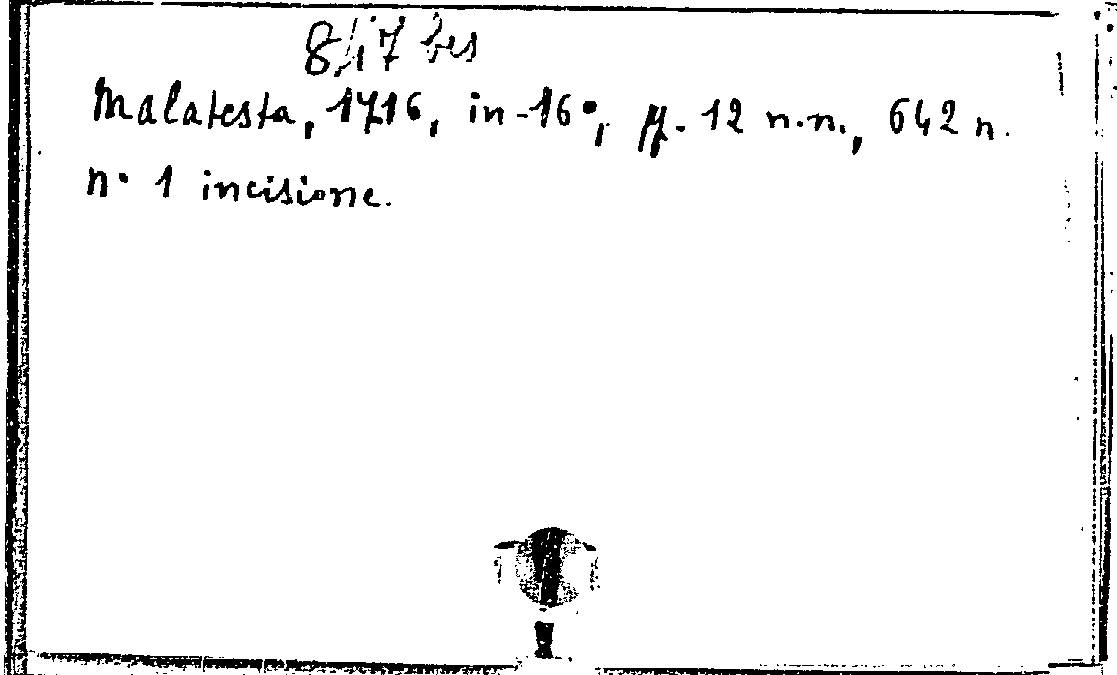 8/17 bis
Malatesta, 1716, in-16°, pp. 12 n.n., 642 n.
n. 1 incisione.